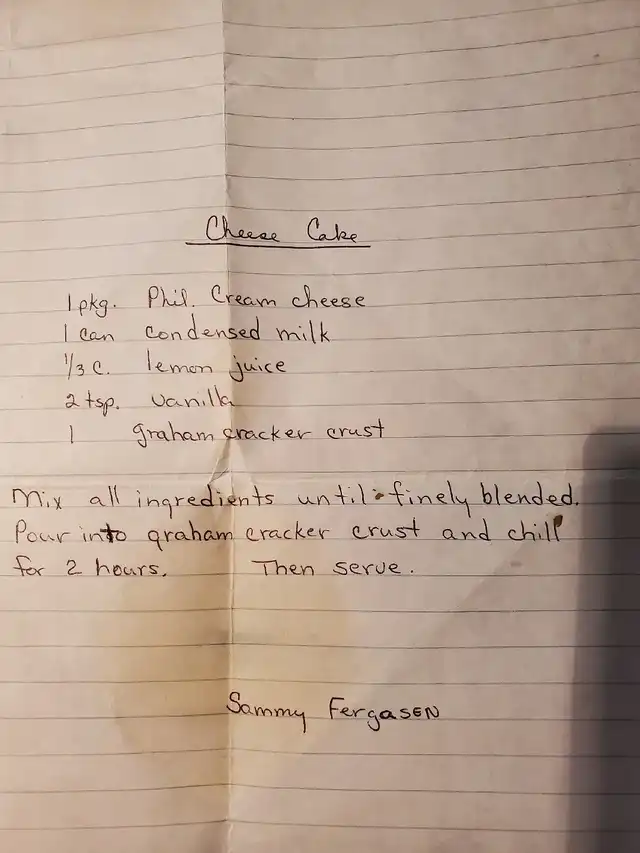 Cheese Cake
1 pkg. Phil. Cream cheese
1 can condensed milk
1/3 c. lemon juice
2 tsp. vanilla
1 graham cracker crust
Mix all ingredients until finely blended.
Pour into graham cracker crust and chill
for 2 hours. Then serve.
Sammy FergasEN